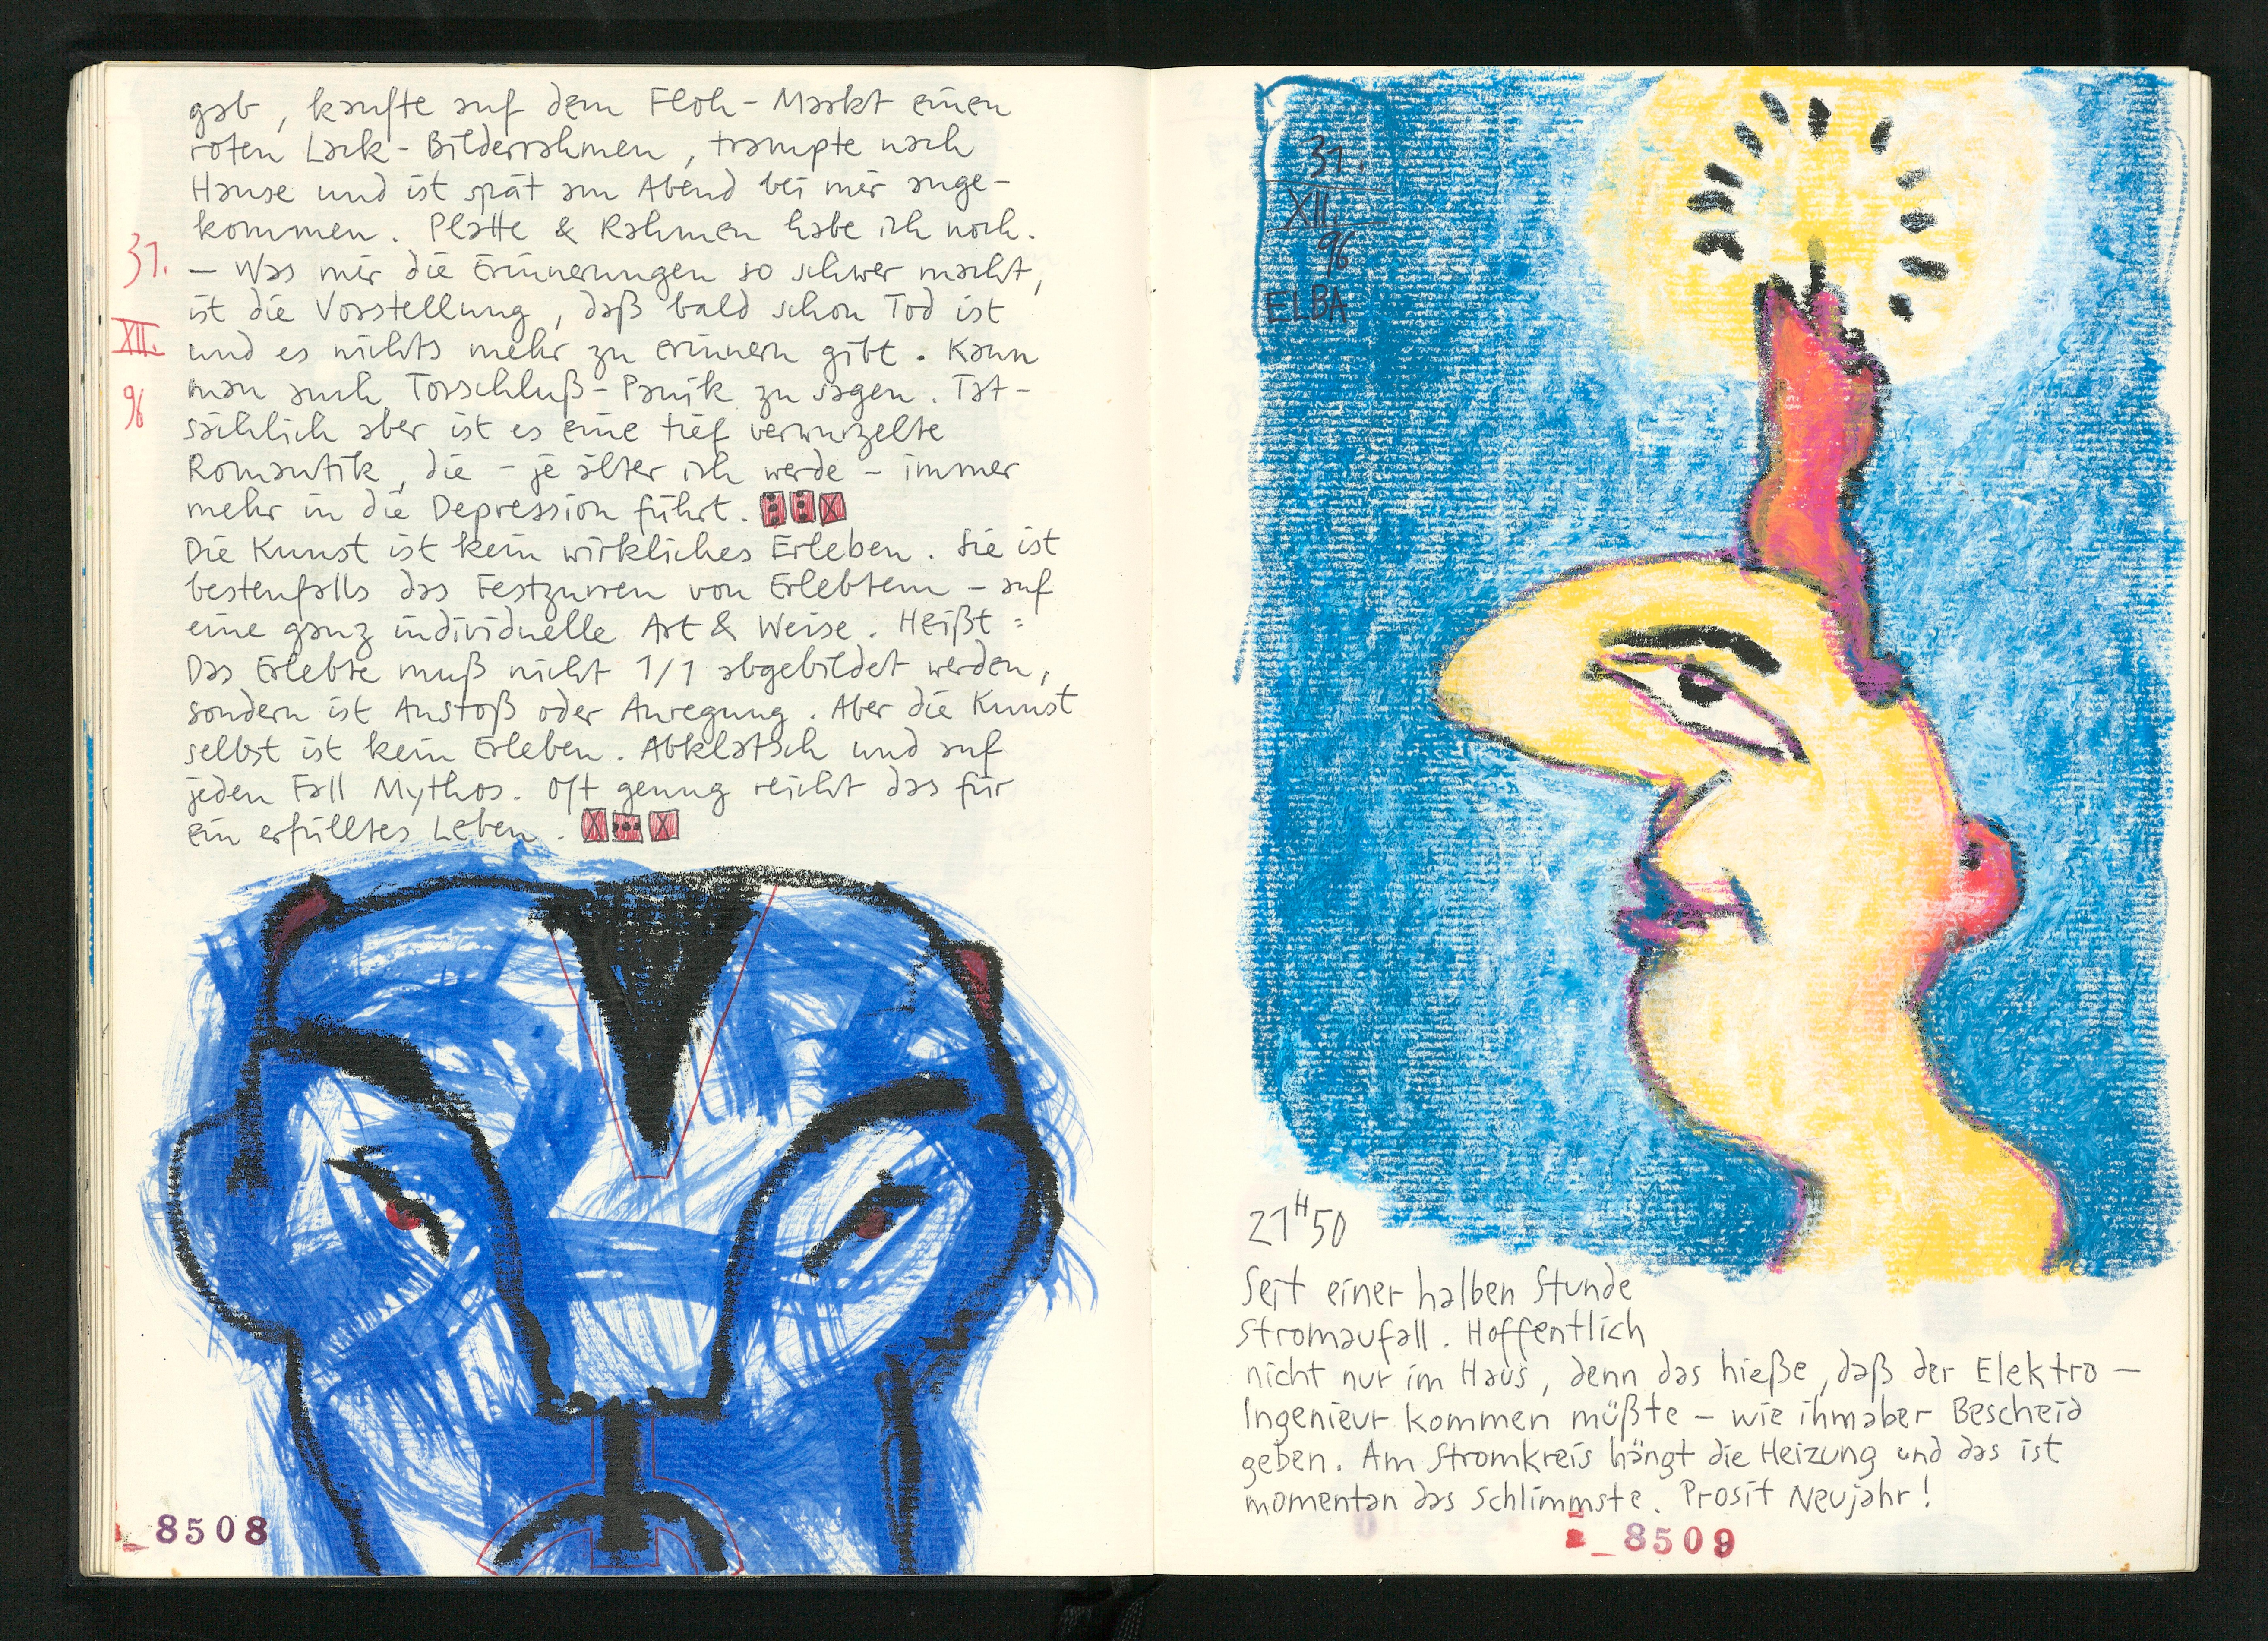 gab, kaufte auf dem Floh-Markt einen
roten Lack-Bilderrahmen, trampte nach
Hause und ist spät am Abend bei mir ange-
kommen. Platte & Rahmen habe ich noch.
31.
XII.
96
— Was mir die Erinnerungen so schwer macht,
ist die Vorstellung, daß bald schon Tod ist
und es nichts mehr zu erinnern gibt. Kann
man auch Torschluß-Panik zu sagen. Tat-
sächlich aber ist es eine tief verwurzelte
Romantik, die – je älter ich werde – immer
mehr in die Depression führt.
Die Kunst ist kein wirkliches Erleben. Sie ist
bestenfalls das Festzurren von Erlebtem – auf
eine ganz individuelle Art & Weise. Heißt:
Das Erlebte muß nicht 1/1 abgebildet werden,
sondern ist Anstoß oder Anregung. Aber die Kunst
selbst ist kein Erleben. Abklatsch und auf
jeden Fall Mythos. Oft genug reicht das für
ein erfülltes Leben.
8508
31.
XII.
96
ELBA
21H50
Seit einer halben Stunde
Stromaufall. Hoffentlich
nicht nur im Haus, denn das hieße, daß der Elektro—
Ingenieur kommen müßte – wie ihm aber Bescheid
geben. Am Stromkreis hängt die Heizung und das ist
momentan das Schlimmste. Prosit Neujahr!
8509